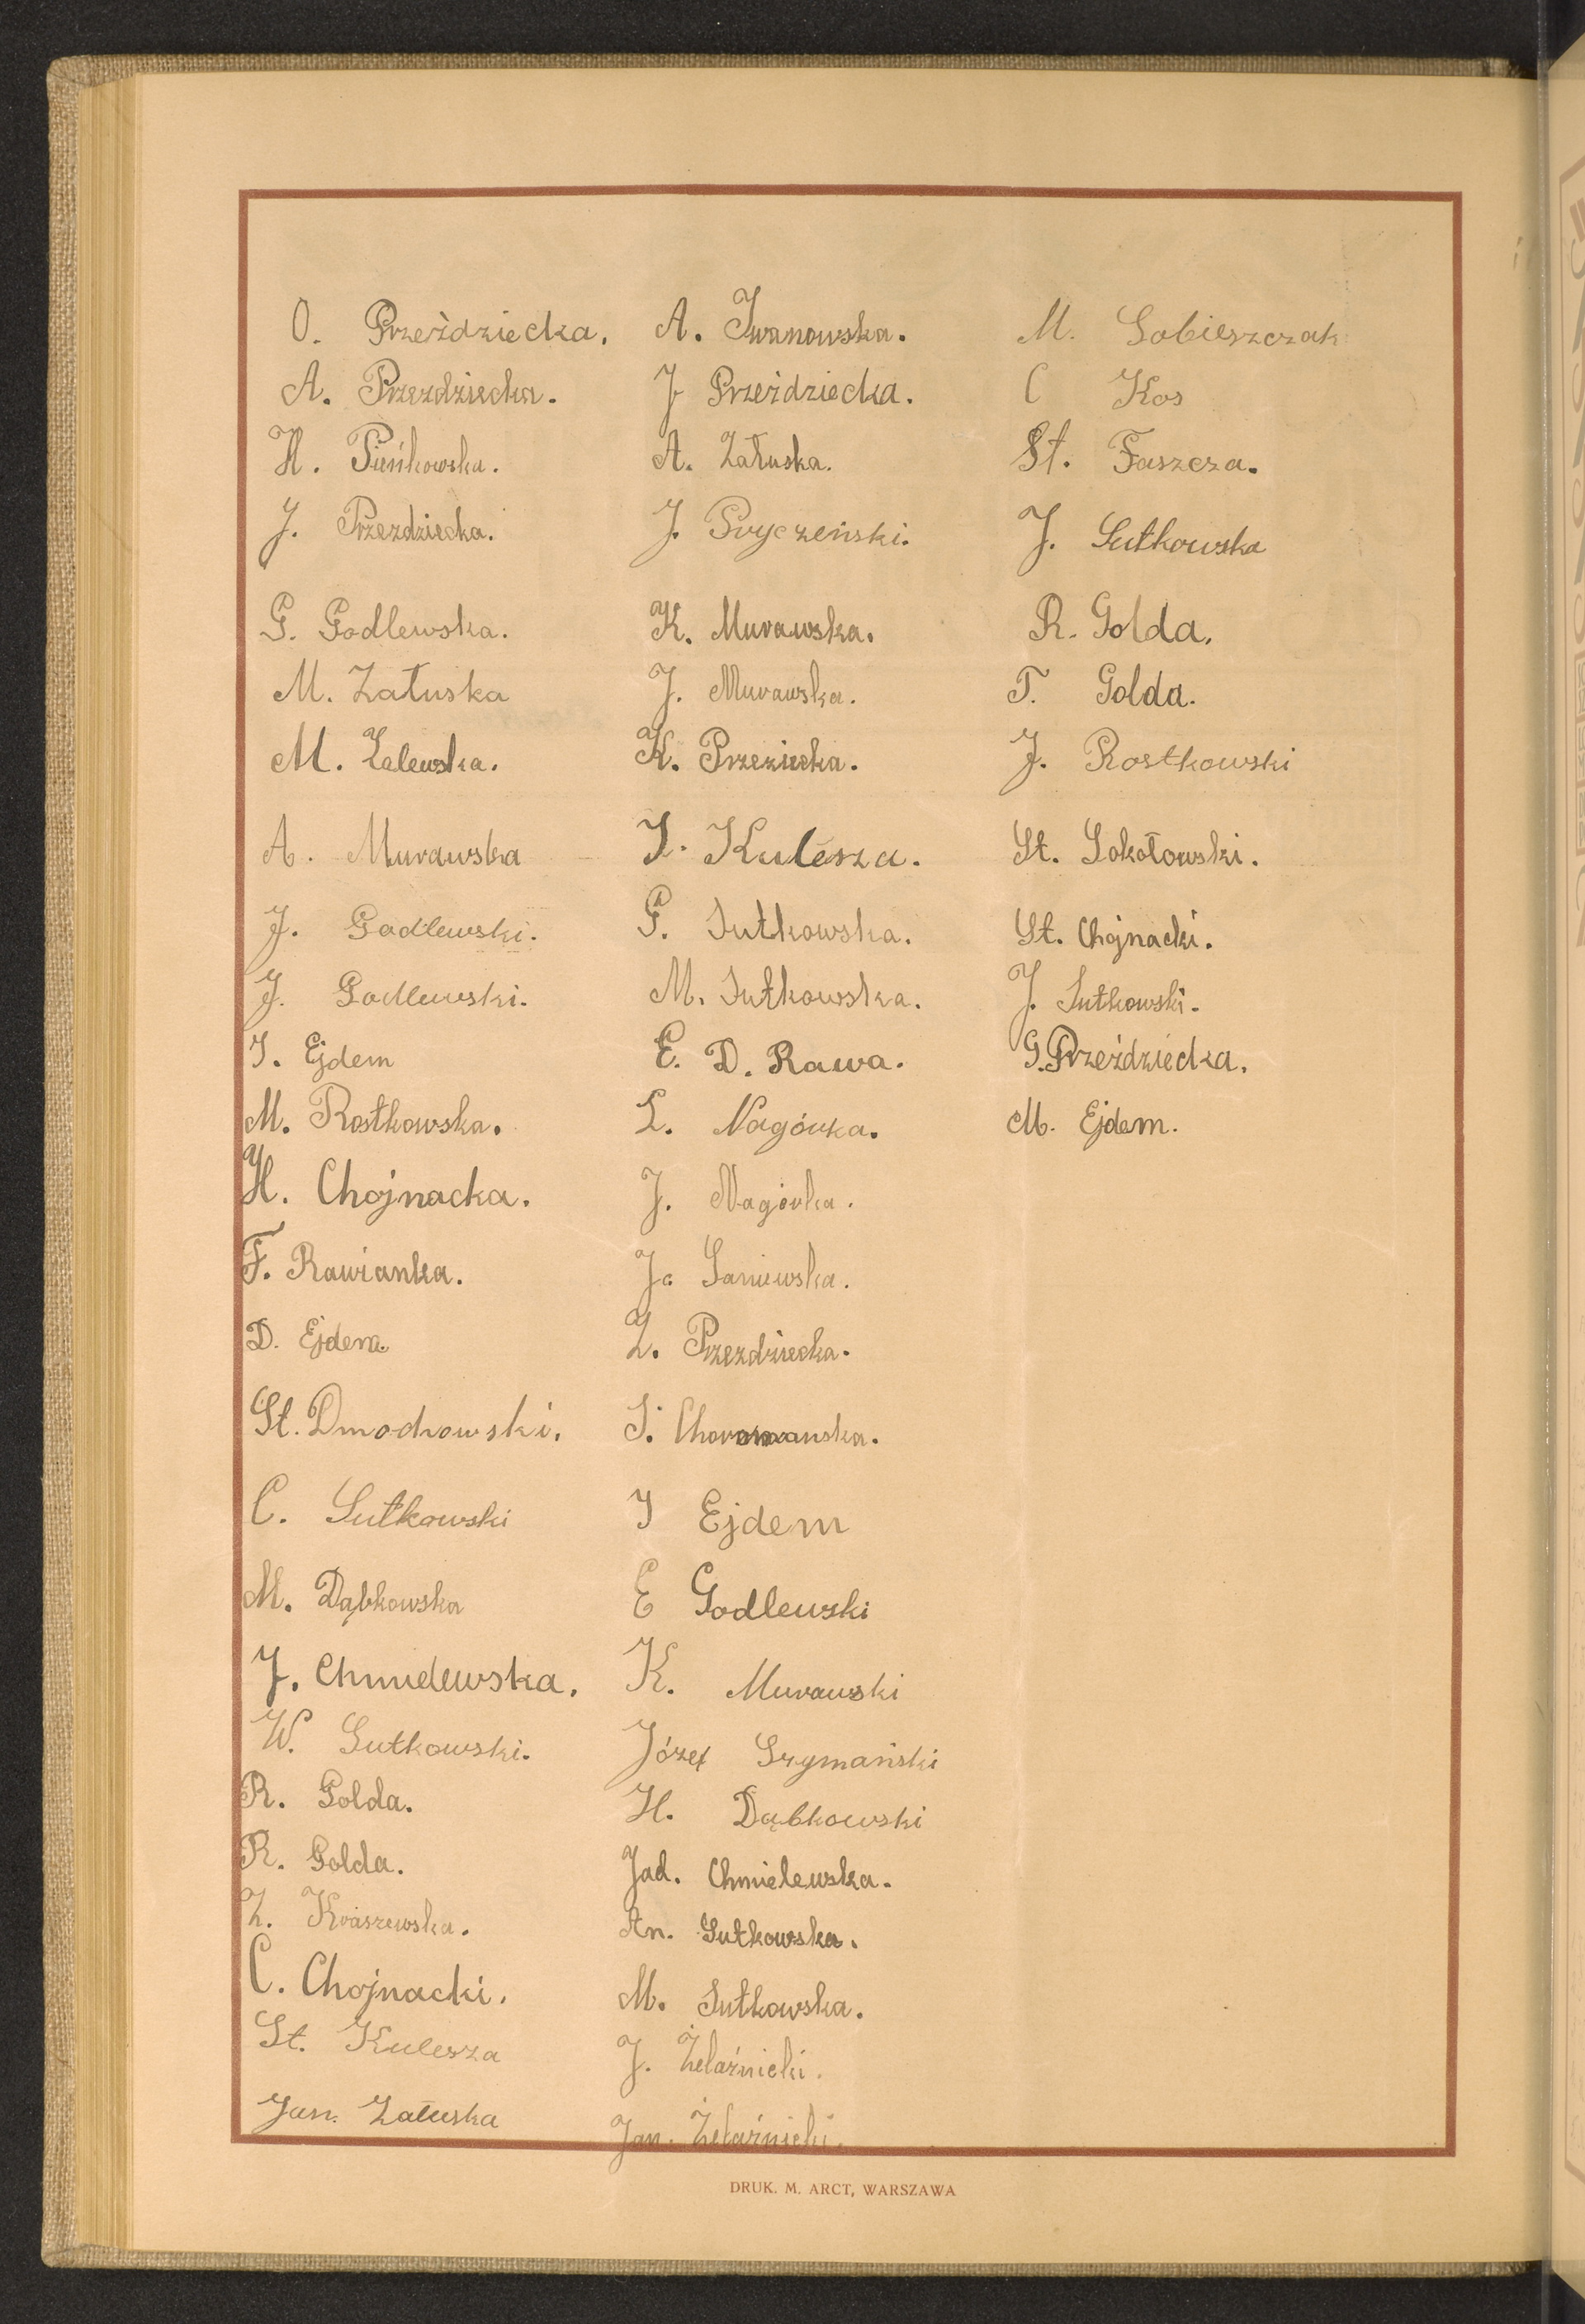 O. Przeździecka.
A. Przezdziecka.
H. Pieńkowska.
J. Przezdziecka.
G. Godlewska.
M. Załuska
M. Zalewska.
A. Murawska
J. Godlewski.
J. Godlewski.
I. Ejdem
M. Rostkowska.
H. Chojnacka.
F. Rawianka.
D. Ejdem
St. Dmochowski.
C. Sutkowski
M. Dąbkowska
J. Chmielewska.
W. Sutkowski.
R. Golda.
R. Golda.
Z. Kraszewska.
C. Chojnacki.
St. Kulesza
Jan. Załuska
A. Iwanowska.
J Przeździecka.
A. Załuska.
J. Pryczeński.
K. Murawska.
J. Murawska.
K. Przeziecka.
I. Kulesza.
G. Sutkowska.
M. Sutkowska.
E. D. Rawa.
L. Nagórka.
J. Nagórka.
J. Saniewska.
Z. Przezdziecka.
I. Choromanska.
I Ejdem
E Godlewski
K. Murawski
Józef Szymański
H. Dąbkowski
Jad. Chmielewska.
An. Sutkowska.
M. Sutkowska.
J. Żelaźnicki.
Jan. Żelaźnicki.
M. Sobieszczak
C Kos
St. Faszcza.
J. Sutkowska
R. Golda.
T. Golda.
J. Rostkowski
St. Sokołowski.
St. Chojnacki.
J. Sutkowski.
G. Przeździecka.
M. Ejdem.
DRUK. M. ARCT, WARSZAWA